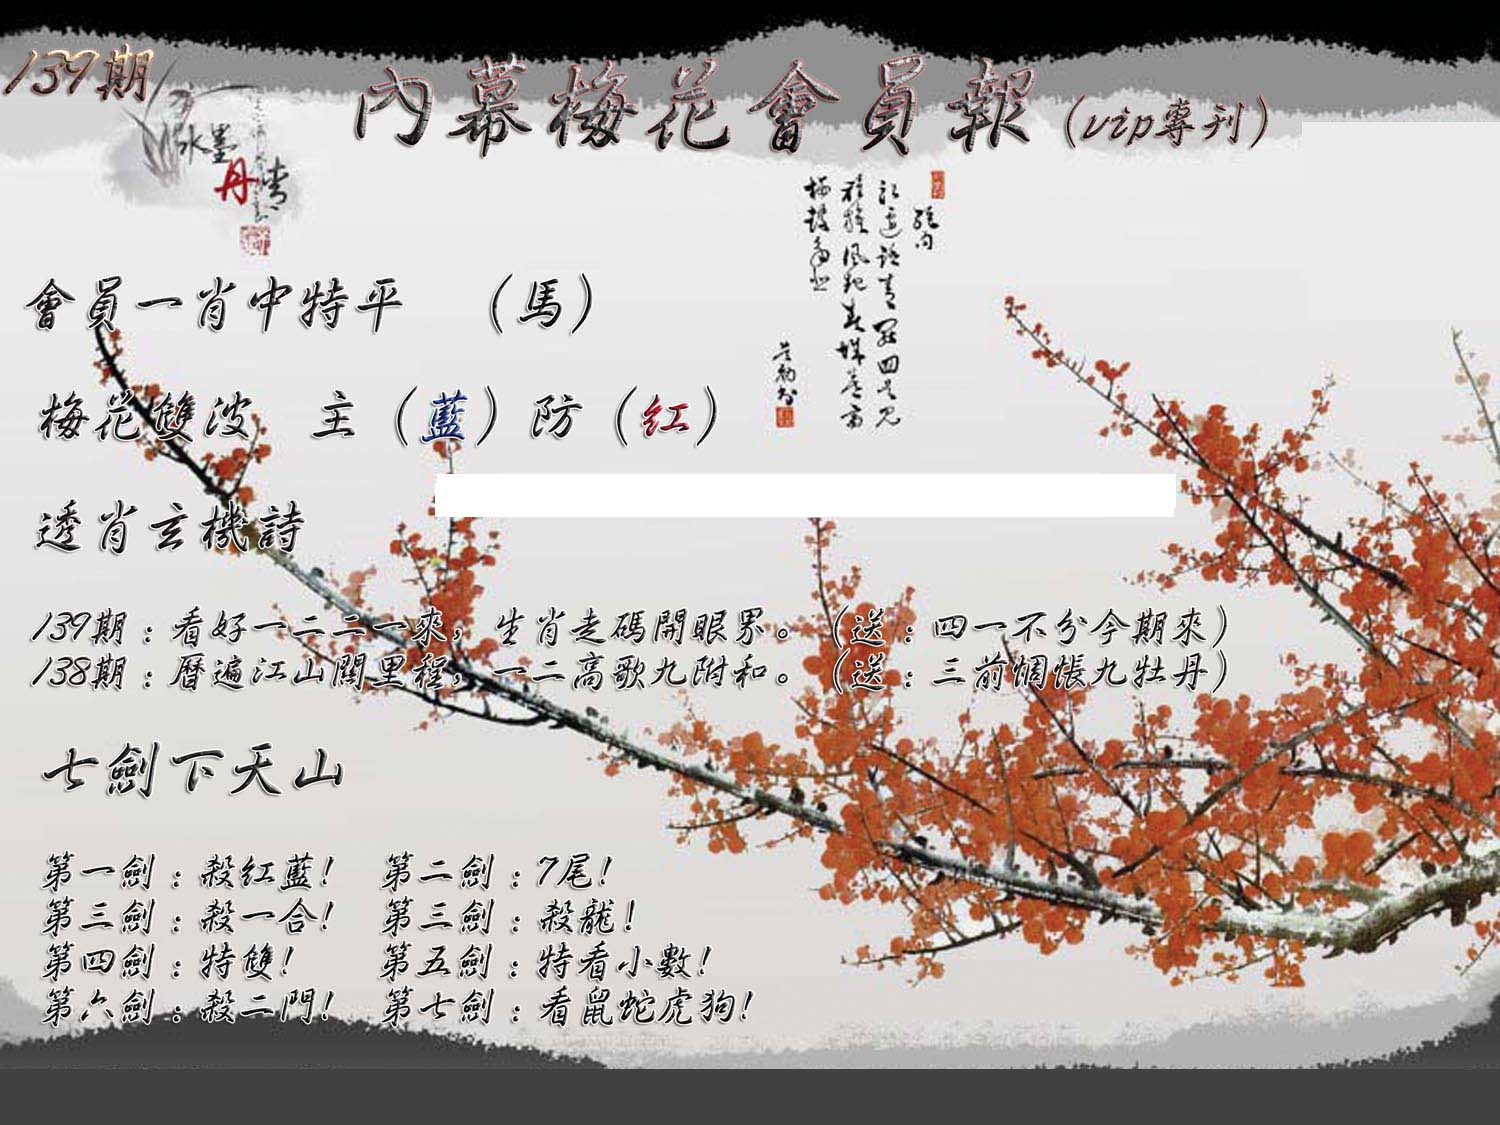 139期
內幕梅花會員報（vip專刊）
水墨
丹青
會員一肖中特平　（馬）
梅花雙波　主（藍）防（紅）
透肖玄機詩
139期：看好一二二一來，生肖走碼開眼界。（送：四一不分今期來）
138期：曆遍江山關里程，一二高歌九附和。（送：三前惆悵九牡丹）
七劍下天山
第一劍：殺紅藍！　第二劍：7尾！
第三劍：殺一合！　第三劍：殺龍！
第四劍：特雙！　第五劍：特看小數！
第六劍：殺二門！　第七劍：看鼠蛇虎狗！